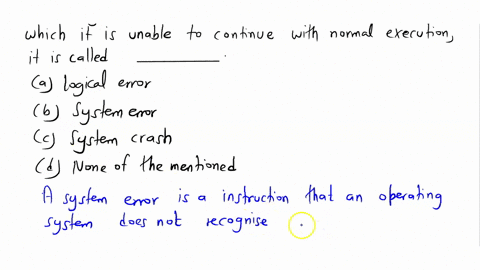 which if is unable to continue with normal execution,
it is called __________.
(a) logical error
(b) System error
(c) System crash
(d) None of the mentioned
A system error is a instruction that an operating
system does not recognise